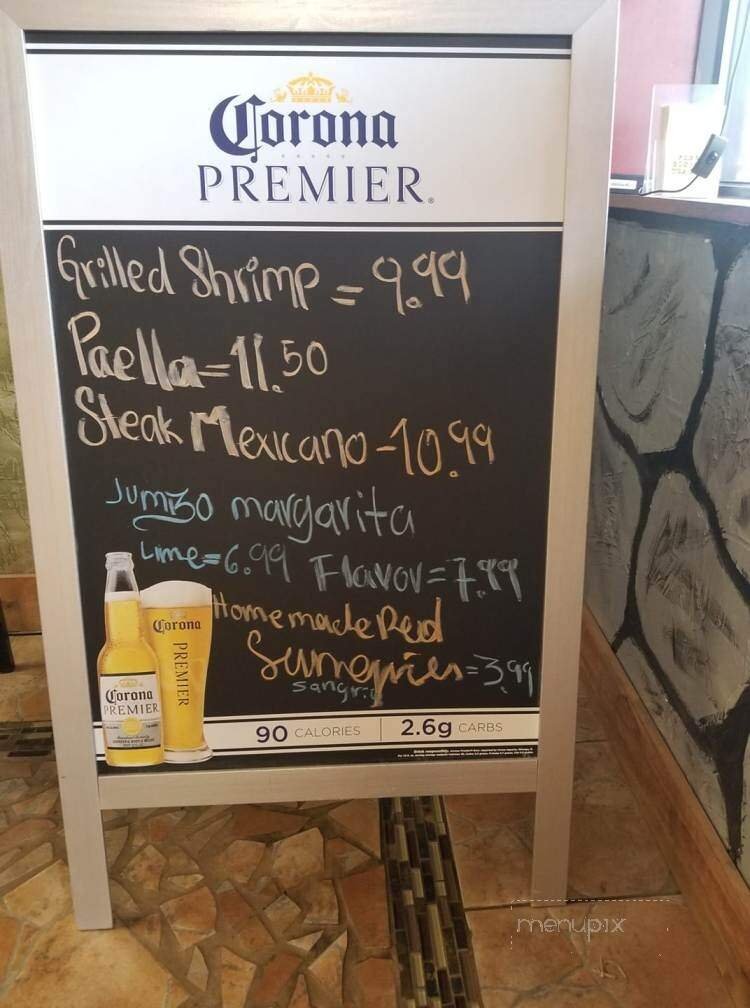 Corona
PREMIER
Grilled Shrimp = 9.99
Paella = 11.50
Steak Mexicano - 10.99
Jumbo margarita
Lime = 6.99 Flavor = 7.99
Homemade Red
= 3.99
Corona
PREMIER
Corona
PREMIER
90 CALORIES 2.6g CARBS
menupix